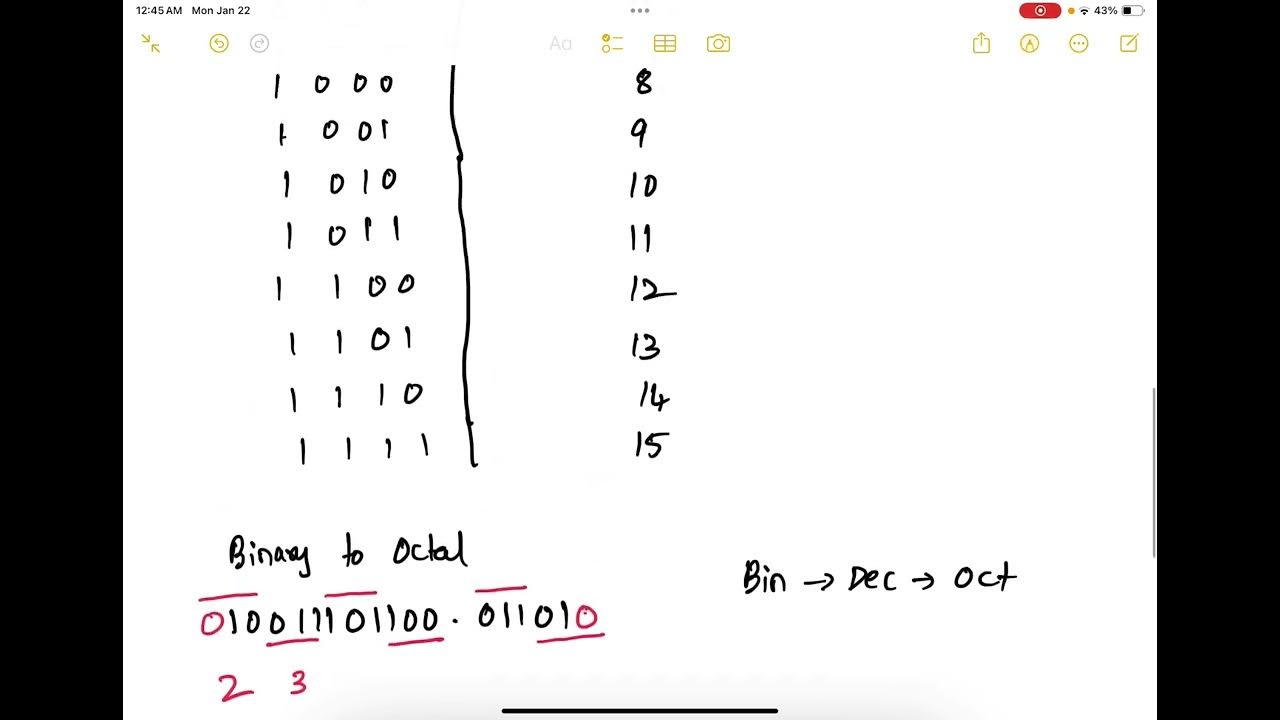 12:45 AM Mon Jan 22 43%
Aa
1 0 0 0 8
1 0 0 1 9
1 0 1 0 10
1 0 1 1 11
1 1 0 0 12
1 1 0 1 13
1 1 1 0 14
1 1 1 1 15
Binary to Octal
Bin → Dec → Oct
010011101100 . 011010
2 3